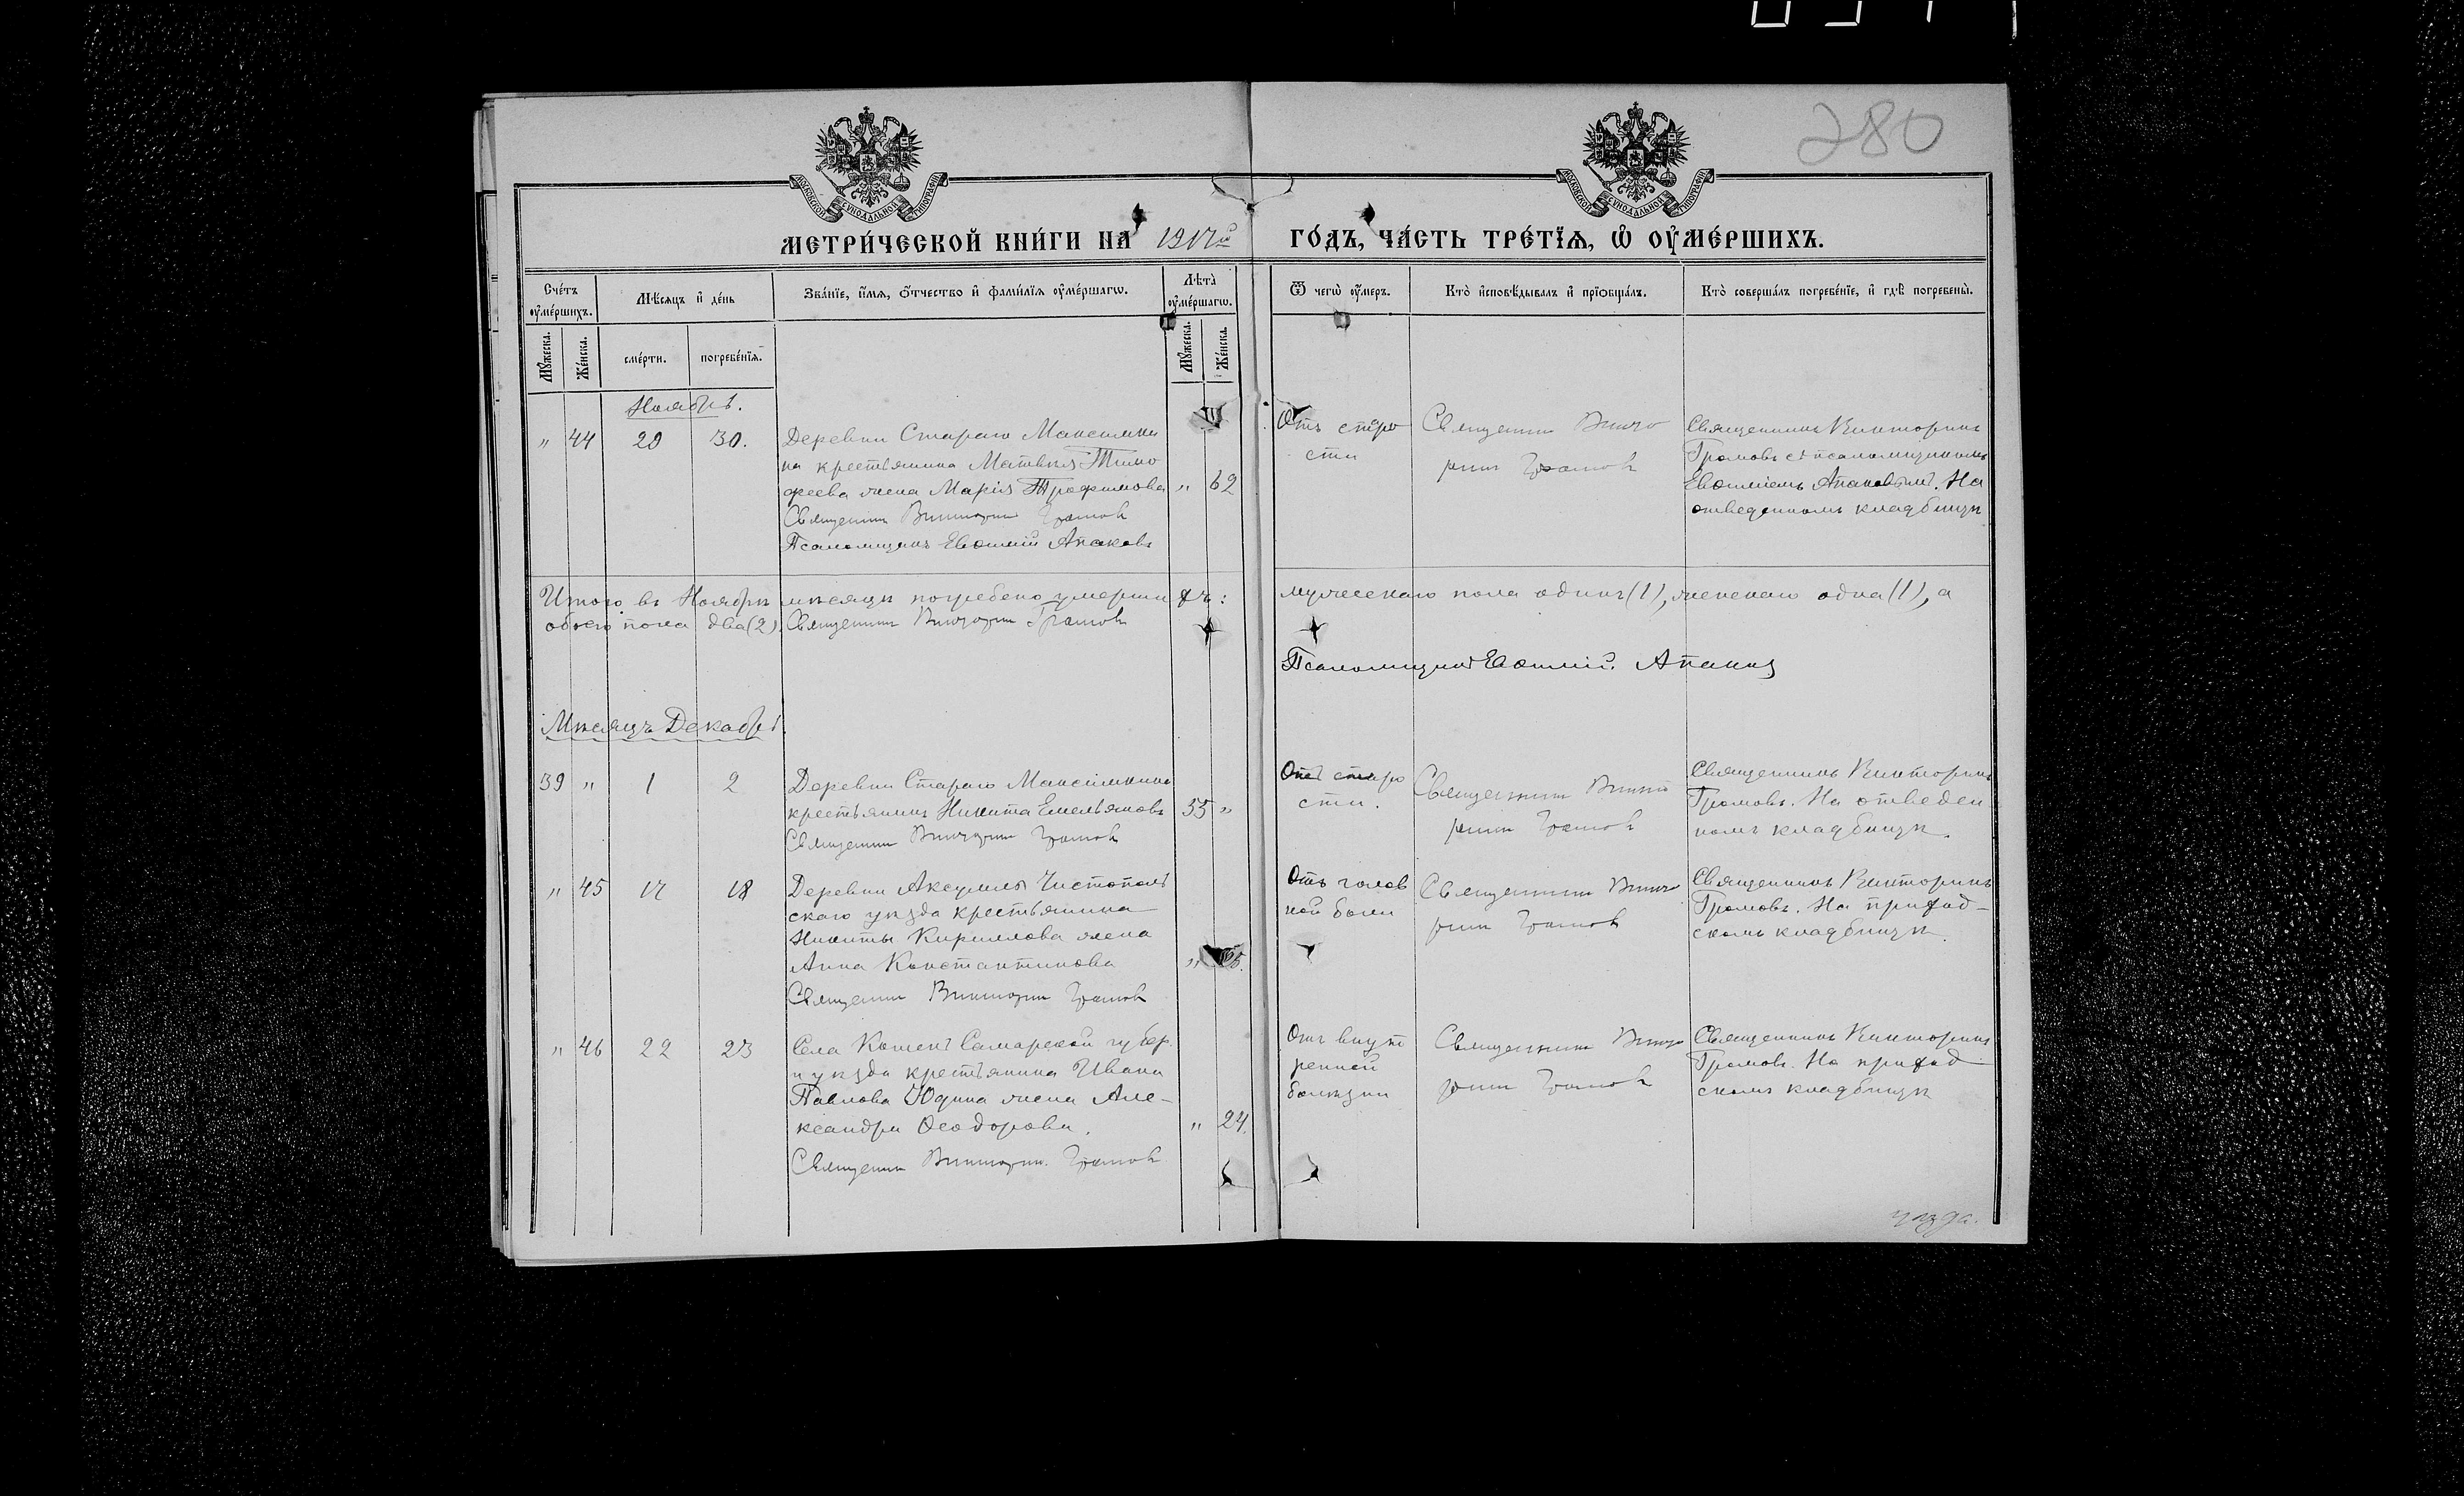 280
МЕТРИ́ЧЕСКОЙ КНИ́ГИ НА 1917й ГО́ДЪ, ЧА́СТЬ ТРЕ́ТЇѦ, Ѽ ОУ҆МЕ́РШИХЪ.
МОСКОВСКОЙ СѴНОДАЛЬНОЙ ТИПОГРАФІИ
МОСКОВСКОЙ СѴНОДАЛЬНОЙ ТИПОГРАФІИ
Сче́тъ оу҆ме́ршихъ.
Мѣ́сѧцъ и҆ де́нь
Зва́нїе, и҆́мѧ, ѻ҆́тчество и҆ фами́лїѧ оу҆ме́ршагѡ.
Лѣ́та оу҆ме́ршагѡ.
Ѿ чегѡ̀ оу҆́меръ.
Кто̀ и҆сповѣ́дывалъ и҆ прїѻбща́лъ.
Кто̀ соверша́лъ погребе́нїе, и҆ гдѣ̀ погребены̀.
Мꙋ́жеска.
Же́нска.
сме́рти.
погребе́нїѧ.
Мꙋ́жеска.
Же́нска.
Ноябрь.
„ 44 29 30.
Деревни Стараго Максимки
на крестьянина Матвѣя Тимо
феева жена Марія Трофимова „ 62
Священникъ Викторинъ Громовъ
Псаломщикъ Евѳимій Апаковъ
Отъ старо
сти
Священникъ Викто
ринъ Громовъ
Священникъ Викторинъ
Громовъ съ псаломщикомъ
Евѳиміемъ Апаковымъ. На
отведенномъ кладбищѣ
Итого въ Ноябрѣ мѣсяцѣ погребено умершихъ: мужескаго пола одинъ (1), женскаго одна (1), а
обоего пола два (2). Священникъ Викторинъ Громовъ
Псаломщикъ Евѳимій Апаковъ
Мѣсяцъ Декабрь.
39 „ 1 2
Деревни Стараго Максимкина
крестьянинъ Никита Емельяновъ 55 „
Священникъ Викторинъ Громовъ
Отъ старо
сти.
Священникъ Викто
ринъ Громовъ
Священникъ Викторинъ
Громовъ. На отведен
номъ кладбищѣ.
„ 45 17 18
Деревни Аксумлы Чистополь
скаго уѣзда крестьянина
Никиты Кириллова жена
Анна Константинова „
Священникъ Викторинъ Громовъ
Отъ голов
ной боли
Священникъ Викто
ринъ Громовъ
Священникъ Викторинъ
Громовъ. На приход-
скомъ кладбищѣ.
„ 46 22 23
Села Самарской губер.
и уѣзда крестьянина Ивана
Павлова Юдина жена Але-
ксандра Ѳеодорова. „ 24.
Священникъ Викторинъ Громовъ
Отъ внут
ренней
болѣзни
Священникъ Викто
ринъ Громовъ
Священникъ Викторинъ
Громовъ. На приход
скомъ кладбищѣ
уѣзда.